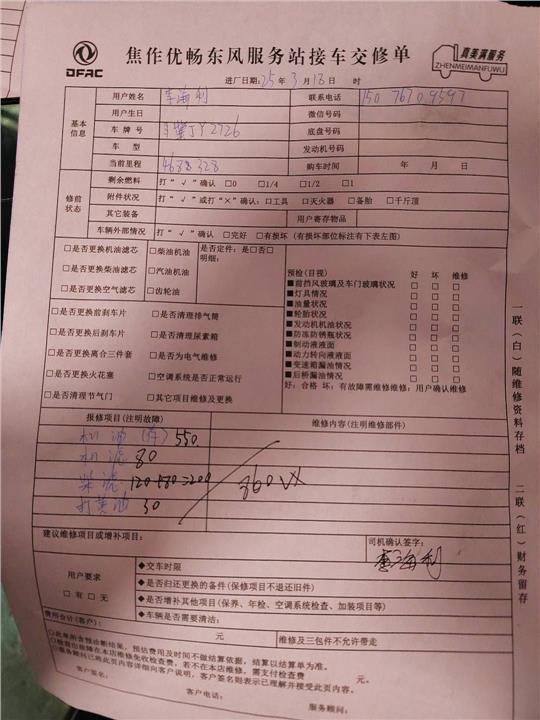 DFAC
焦作优畅东风服务站接车交修单
真美满服务
ZHENMEIMANFUWU
进厂日期:25年3月18日 时
基本信息
用户姓名 李海利 联系电话 150 7670 9597
用户生日 微信号码
车牌号 JY2726 底盘号码
车型 发动机号码
当前里程 4688328 购车时间 年 月 日
修前状态
剩余燃料 打“√”确认 □0 □1/4 □1/2 □1
附件状况 打“√”或打“×”确认:□工具 □灭火器 □备胎 □千斤顶
其它装备 用户寄存物品
车辆外部情况 打“√”确认 □完好 □有损坏(有损坏部位标注有下表左图)
□是否更换机油滤芯 □柴油机油 是否定件:是□否□
明细:
□是否更换柴油滤芯 □汽油机油
□是否更换空气滤芯 □齿轮油
预检(目视) 好 坏 维修
■前挡风玻璃及车门玻璃状况 □ □ □
■灯具情况 □ □ □
■油量状况 □ □ □
■轮胎状况 □ □ □
■发动机机油状况 □ □ □
■防冻防锈瓶状况 □ □ □
■制动液液面 □ □ □
■动力转向液液面 □ □ □
■变速箱漏油情况 □ □ □
■后桥漏油情况 □ □ □
好:合格 坏:有故障需维修维修:用户确认维修
□是否更换前刹车片 □是否清理排气筒
□是否更换后刹车片 □是否清理尿素箱
□是否更换离合三件套 □是否为电气维修
□是否更换火花塞 □空调系统是否正常运行
□是否清理节气门 □其它项目维修及更换
报修项目(注明故障) 维修内容(注明维修部件)
机油 550
机滤 80
柴滤 120+80=200
打黄油 30
860 VX
建议维修项目或增补项目: 司机确认签字:
李海利
用户要求
□有 □无
◆交车时限
◆是否归还更换的备件(保修项目不退还旧件)
◆是否增补其他项目(保养、年检、空调系统检查、加装项目等)
◆车辆是否需要清洁:
费用合计(客户): 元 维修及三包件不允许带走
○此单所含预诊断结果,预估费用及时间不做结算依据,结算以结算单为准。
○检查出故障在本店维修免收检查费,若不在本店维修,需支付检查费 元。
○服务顾问已将此页内容详细向客户说明,客户签名则表示已理解并接受此页内容。
客户签名: 客户电话: 服务顾问:
一联(白)随维修资料存档
二联(红)财务留存